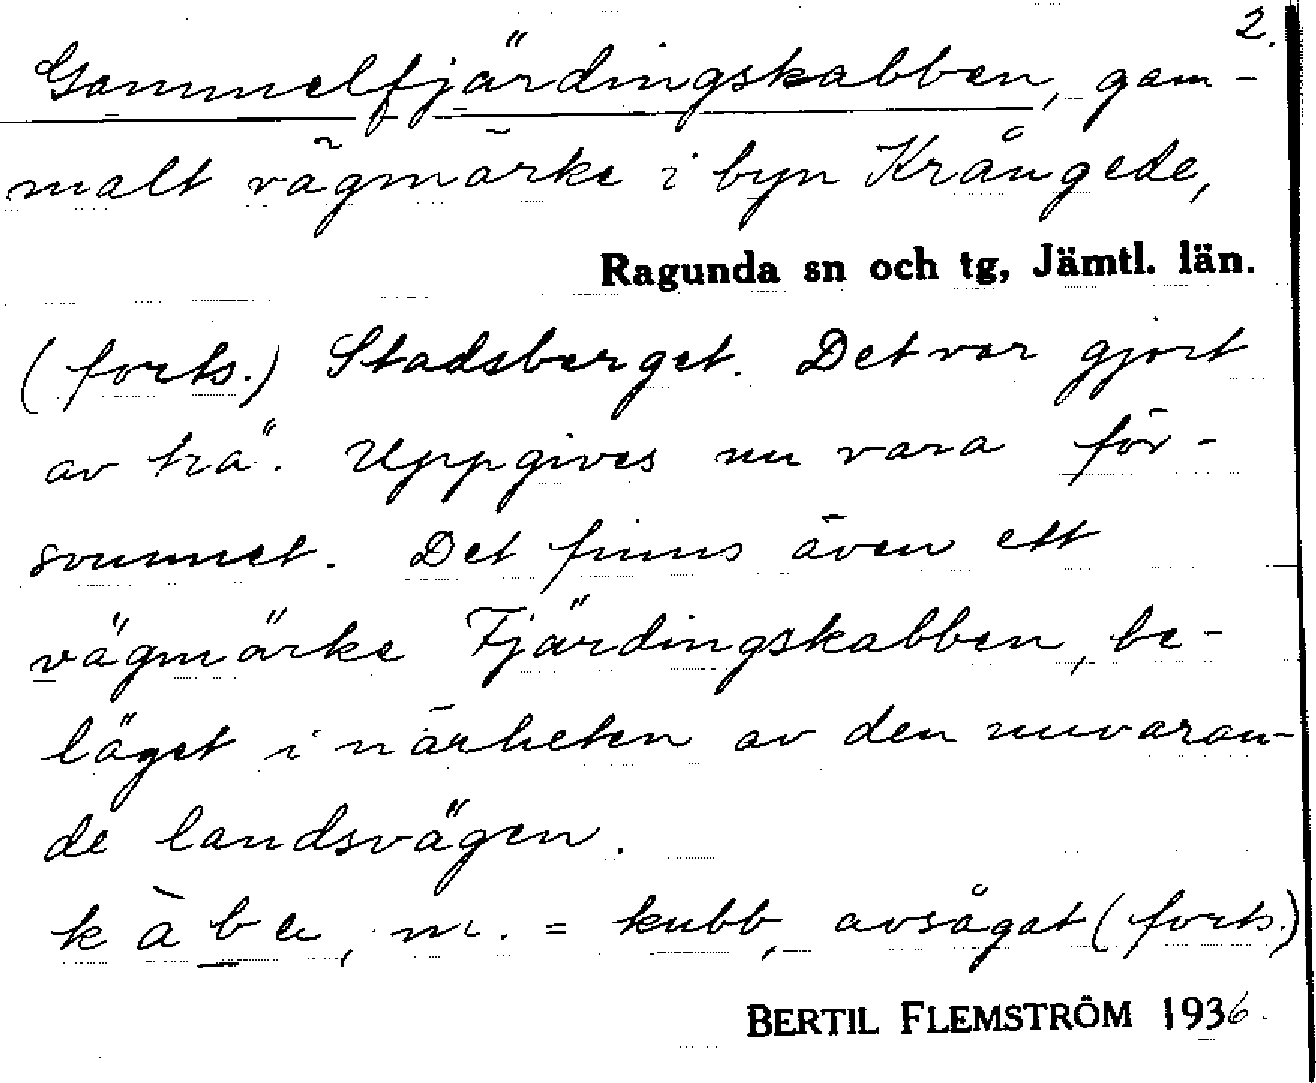 2.
Gammelfjärdingskabben, gam-
malt vägmärke i byn Krångede,
Ragunda sn och tg, Jämtl. län.
(forts.) Stadsberget. Det var gjort
av trä. Uppgives nu vara för-
svunnet. Det finns även ett
vägmärke Fjärdingskabben, be-
läget i närheten av den nuvaran-
de landsvägen.
m. = kubb, avsågat (forts.)
BERTIL FLEMSTRÖM 1936.